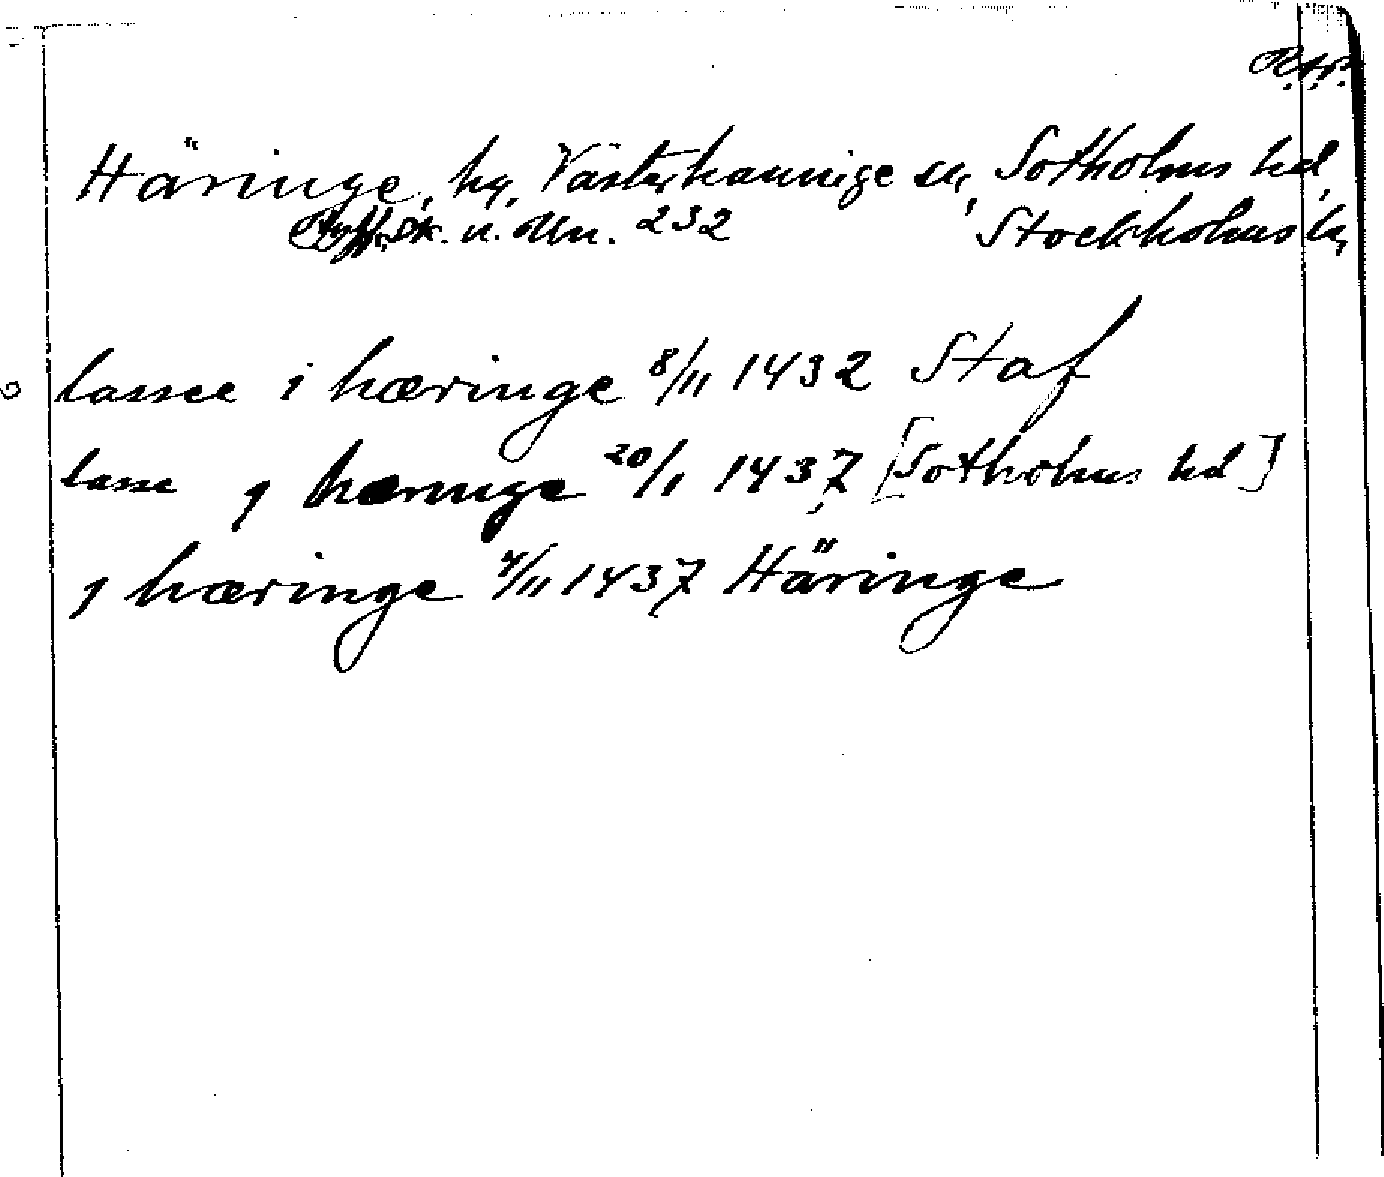 R.A.P.
Häringe, hg, Västerhaninge sn, Sotholms hd,
Sk. u. Mn. 232 Stockholms ln
lassee i hæringe 8/11 1432 Staf
lasse j hæringe 20/1 1437 [Sotholms hd]
j hæringe 4/11 1437 Häringe